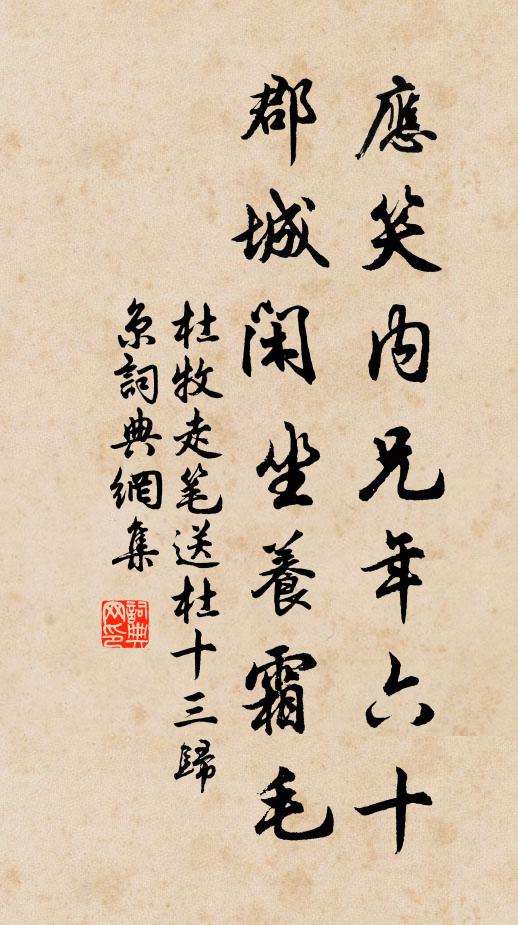 應笑内兄年六十
郡城閑坐養霜毛
杜牧走笔送杜十三歸
京詞典網集
詞典网印